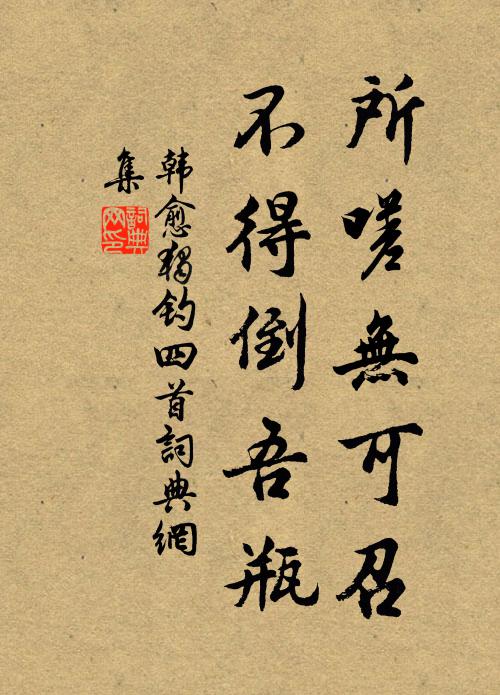 所嗟無可召
不得倒吾瓶
韩愈獨釣四首詞典網
集
詞典
网印